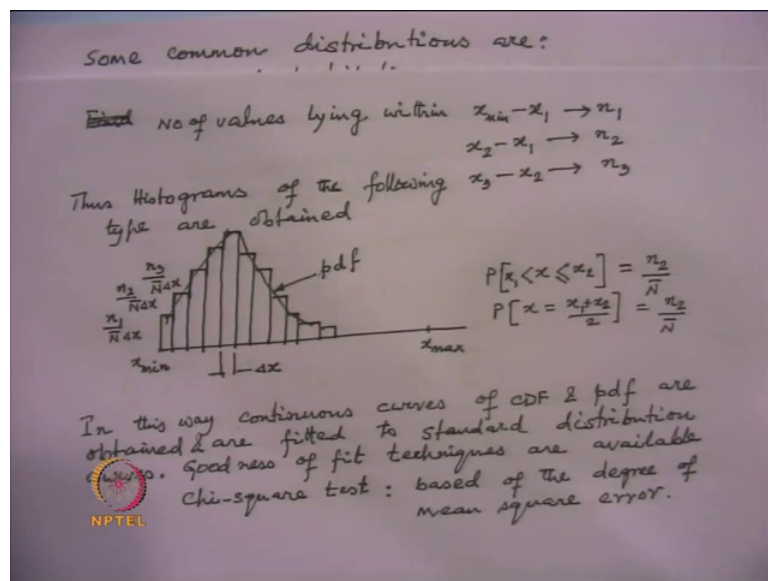 Some common distributions are:
No of values lying within x_min − x_1 → n_1
x_2 − x_1 → n_2
x_3 − x_2 → n_3
Thus Histograms of the following
type are obtained
pdf
n_3/N̅Δx
n_2/N̅Δx
n_1/N̅Δx
P[x_1 < x ≤ x_2] = n_2/N̅
P[x = (x_1+x_2)/2] = n_2/N̅
x_min
Δx
x_max
In this way continuous curves of CDF & pdf are
obtained & are fitted to standard distribution
Goodness of fit techniques are available
Chi-square test : based of the degree of
mean square error.
NPTEL